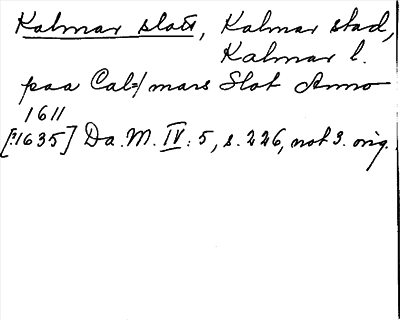 Kalmar slott, Kalmar stad,
Kalmar l.
paa Cal=/mars Slot Anno
1611
[:1635] Da. M. IV: 5, s. 226, not 3. orig.